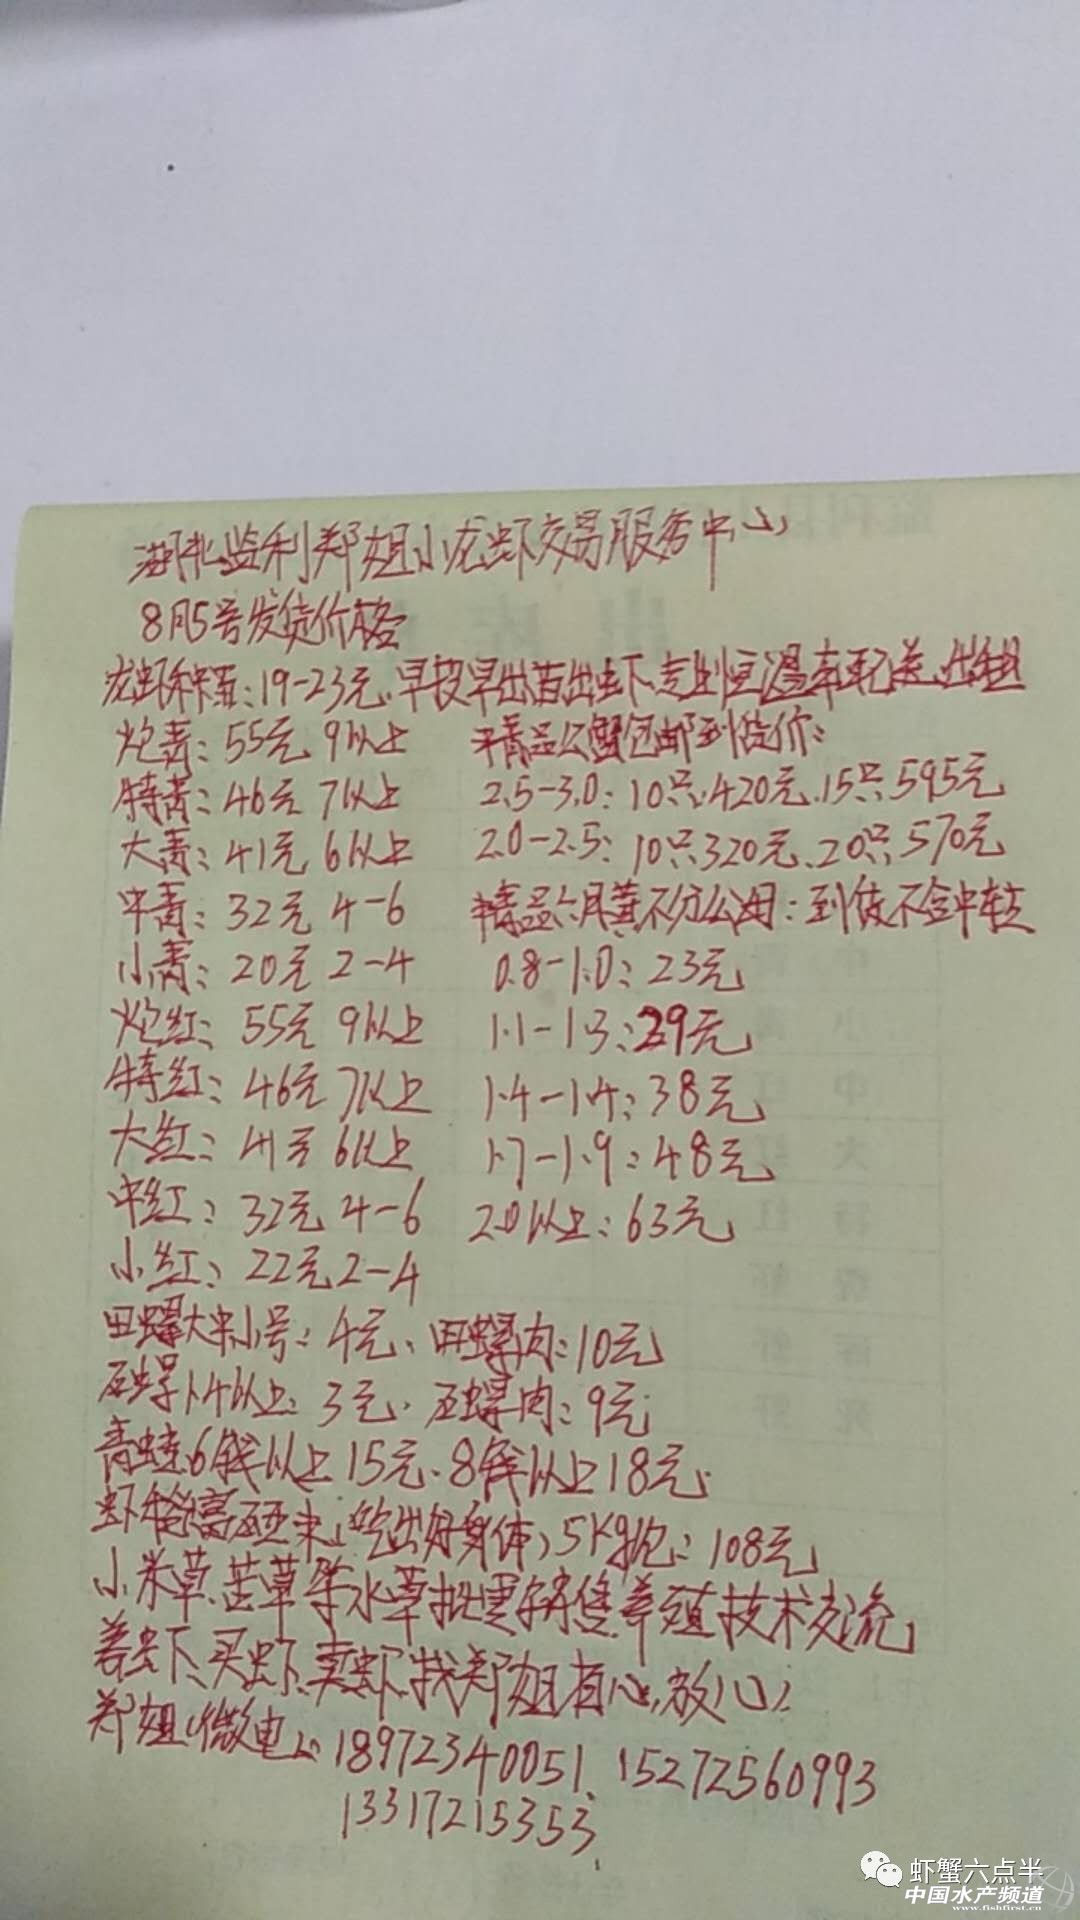 湖北监利郑姐小龙虾交易服务中心
8月5号发货价格
龙虾种苗:19-23元.早投早出苗出虾、专业恒温车配送.出租
炮青:55元 9以上 精品公蟹包邮到货价:
特青:46元 7以上 2.5-3.0:10只.420元.15只.595元
大青:41元 6以上 2.0-2.5:10只320元、20只570元
中青:32元 4-6 精品六月黄不分公母:到货不含中转
小青:20元 2-4 0.8-1.0:23元
炮红:55元 9以上 1.1-1.3:29元
特红:46元 7以上 1.4-1.4:38元
大红:41元 6以上 1.7-1.9:48元
中红:32元 4-6 2.0以上:63元
小红:22元 2-4
田螺大中小号:4元、田螺肉:10元
石螺1.4以上:3元.石螺肉:9元
青蛙6钱以上15元.8钱以上18元
虾稻高 米(吃出好身体)5Kg包:108元
小米草.苦草等水草批零销售养殖技术交流
养虾、买虾、卖虾、找郑姐省心,放心!
郑姐(微电):18972340051、15272560993
13317215353
虾蟹六点半
中国水产频道
www.fishfirst.cn